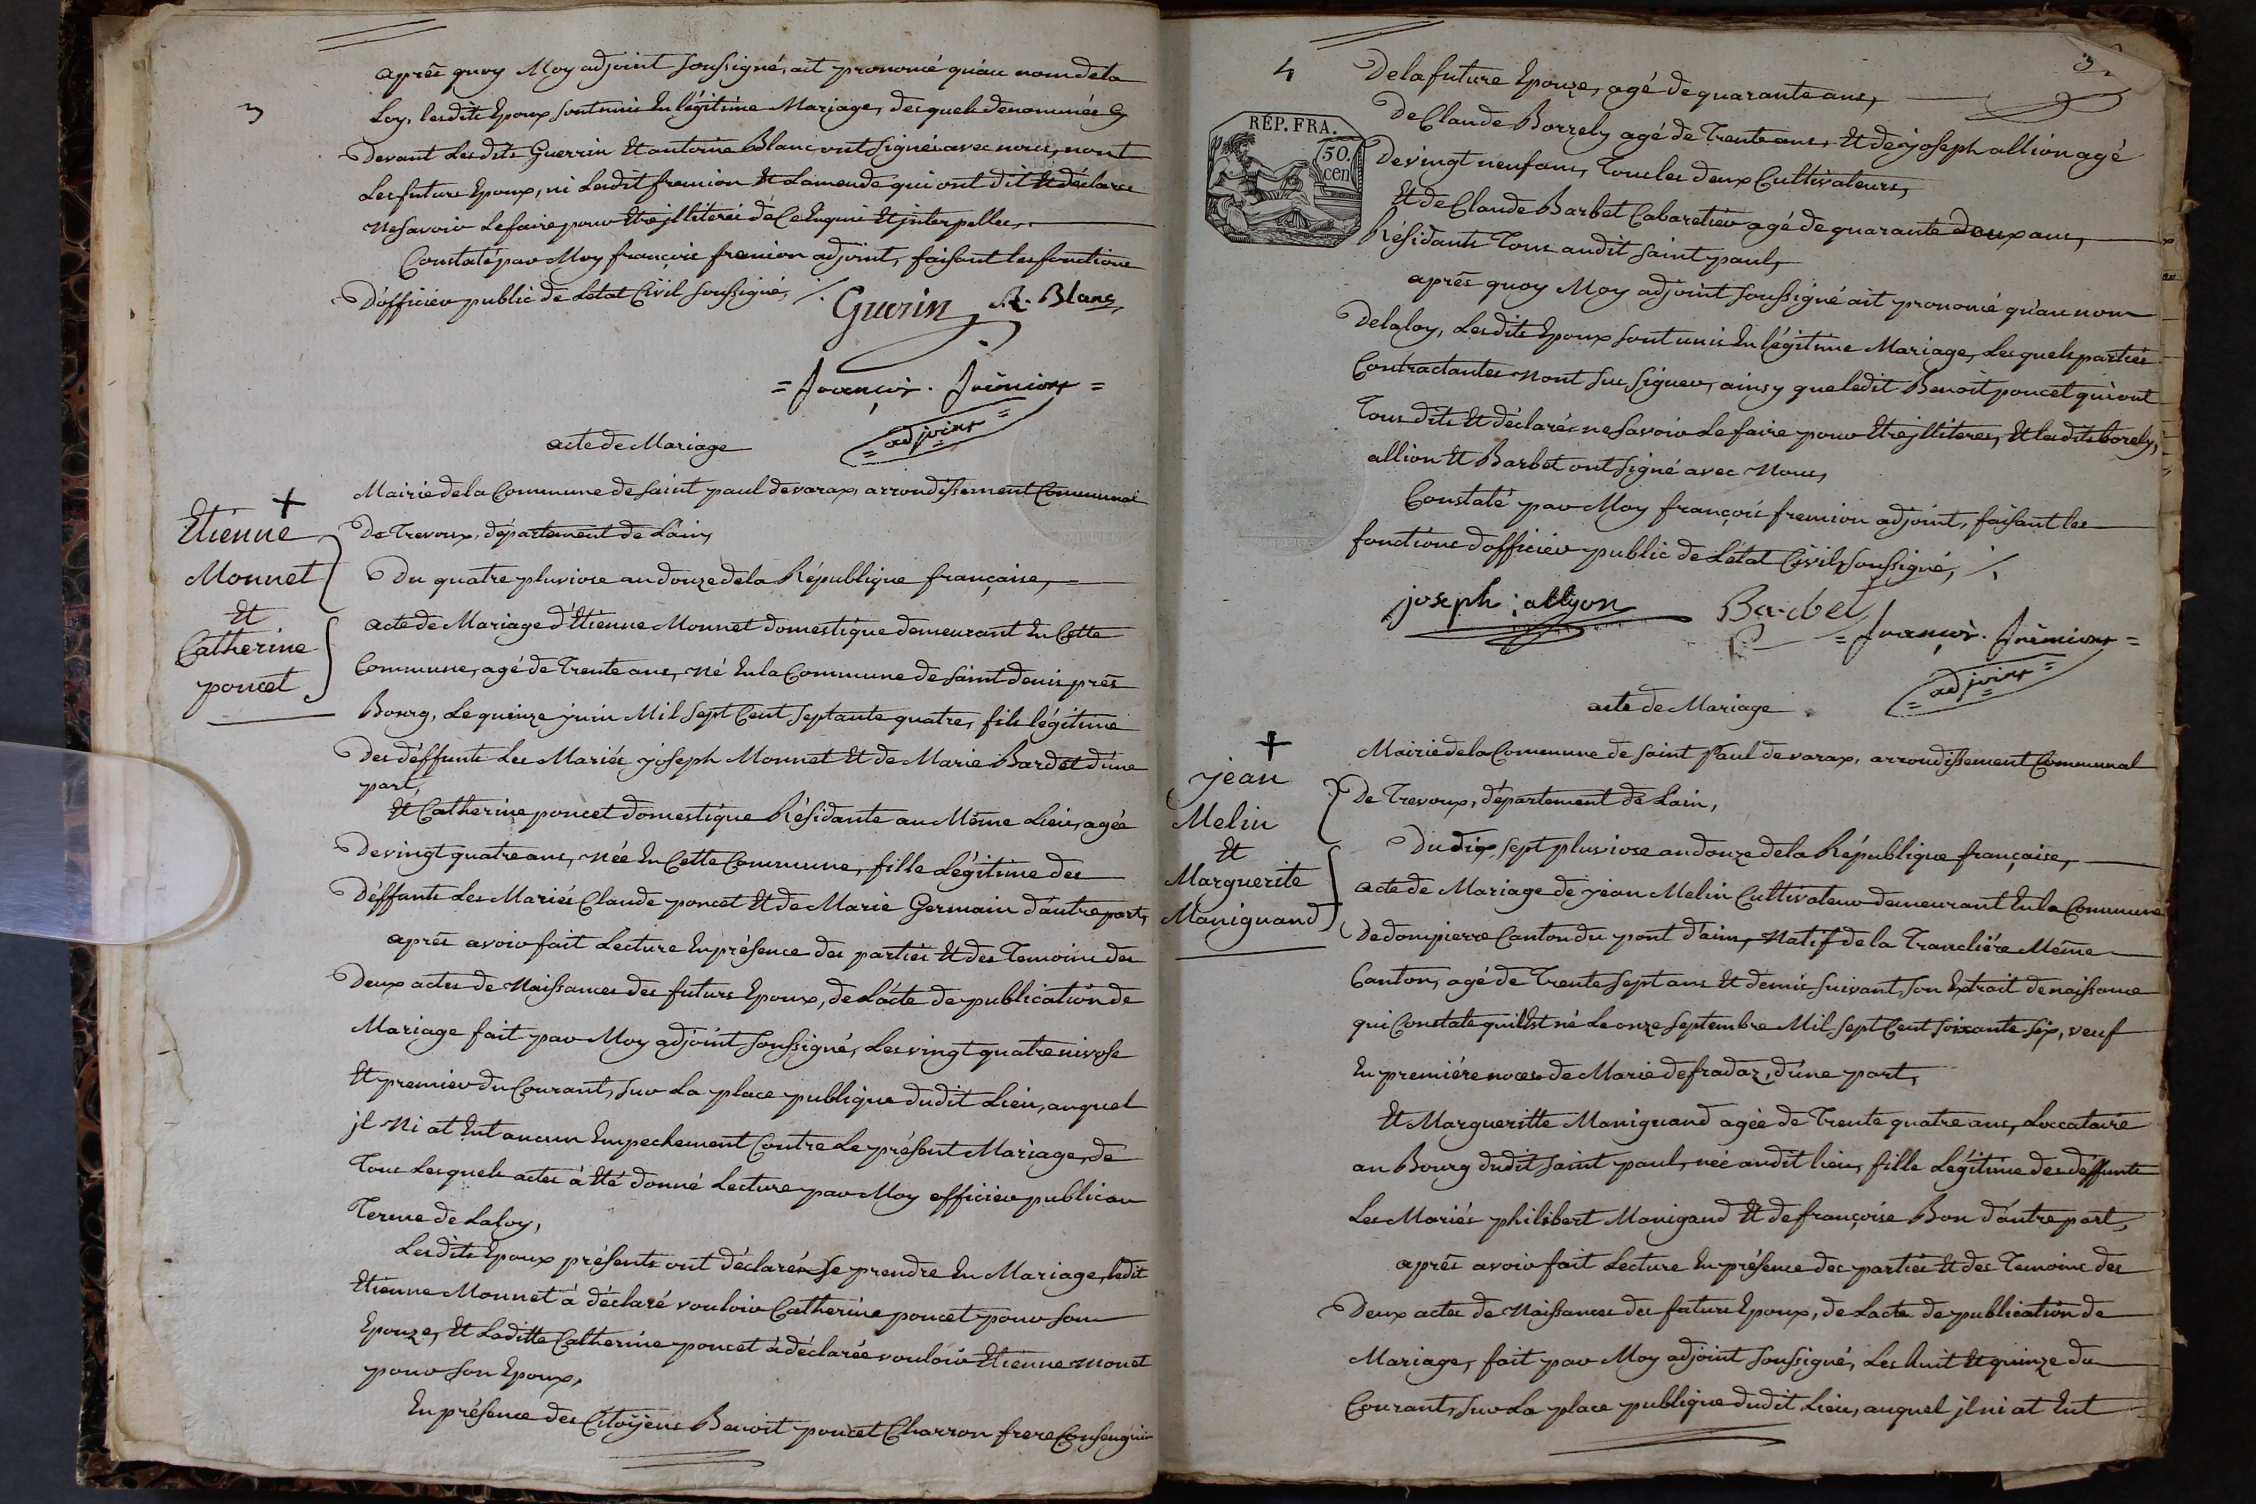 3
après quoy Moy adjoint soussigné, ait prononcé qu'au nom de la
Loy, lesdits Epoux sont unis En légitime Mariage, desquels denommés Cy
devant Lesdits Guerrin Et antoine Blanc ont signés avec nous, nont
Les futurs Epoux, ni Ledit fremion Et Lamende qui ont dit Et déclaré
ne savoir Le faire pour Etre jlliterés de Ce Enquis Et jnterpellés,
Constaté par Moy françois fremion adjoint, faisant les fonctions
D'officier public de Létat Civil soussigné,
Guerin A. Blanc
= françois. frémion =
= adjoint =
acte de Mariage
Etienne
Monnet
Et
Catherine
poncet
Mairie de la Commune de saint paul de varax, arrondissement Communal
De Trevoux, département de L'ain,
Du quatre pluviose an douze de la République française,
acte de Mariage d'Etienne Monnet domestique demeurant En Cette
Commune, agé de Trente ans, né En la Commune de saint denis près
Bourg, Le quinze juin Mil sept Cent septante quatre, fils légitime
Des déffunts Les Mariés joseph Monnet Et de Marie Bardet d'une
part,
Et Catherine poncet domestique Résidante au Même Lieu, agée
De vingt quatre ans, née En Cette Commune, fille Légitime des
Déffunts Les Mariés Claude poncet Et de Marie Germain d'autre part,
après avoir fait Lecture En présence des parties Et des Temoins des
Deux actes de Naissances des futurs Epoux, de L'acte de publication de
Mariage fait par Moy adjoint soussigné, Les vingt quatre nivose
Et premier du Courant, sur La place publique dudit Lieu, auquel
jl Ni at Eut aucun Empechement Contre Le présent Mariage, de
Tous Lesquels actes à Eté donné Lecture par Moy officier public au
Terme de La loy,
Lesdits Epoux présents ont déclarés se prendre En Mariage, ledit
Etienne Monnet à déclaré vouloir Catherine poncet pour son
Epouze, Et Laditte Catherine poncet à déclarée vouloir Etienne monet
pour son Epoux,
En présence des Citoÿens Benoit poncet Charron frere Consenguin
4
De la future Epouze, agé de quarante ans,
De Claude Borrely agé de Trente ans, Et de joseph allion agé
De vingt neuf ans, Tous les deux Cultivateurs,
Et de Claude Barbet Cabaretier agé de quarante deux ans,
Résidants Tous audit saint paul,
RÉP. FRA.
50.
cen
après quoy Moy adjoint soussigné ait prononcé qu'au nom
De la loy, Lesdits Epoux sont unis En légitime Mariage, Lesquels parties
Contractantes Nont sus signer, ainsy que ledit Benoit poncet qui ont
Tous dits Et déclarés ne savoir Le faire pour Etre jlliteres, Et lesdits borely,
allion Et Barbet ont signé avec Nous,
Constaté par Moy françois fremion adjoint, faisant les
fonctions d'officier public de L'état Civil, soussigné,
joseph allyon Barbet
= françois. frémion =
= adjoint =
acte de Mariage
jean
Melin
Et
Marguerite
Maniguand
Mairie de la Commune de saint Paul de varax, arrondissement Communal
De Trevoux, département de Lain,
Du dix sept pluviose an douze de la République française,
acte de Mariage de jean Melin Cultivateur demeurant En la Commune
De dompierre Canton du pont d'ain, Natif de la Trancliére Même
Canton, agé de Trente sept ans Et demis suivant son Extrait de naissance
qui Constate quil Est né Le onze septembre Mil sept Cent soixante six, veuf
En premiére noces de Marie defradaz, d'une part,
Et Margueritte Maniguand agée de Trente quatre ans, Loccataire
au Bourg dudit saint paul, née audit lieu, fille Légitime des déffunts
Les Mariés philibert Manigand Et de françoise Bon d'autre part,
après avoir fait Lecture En présence des parties Et des Temoins des
Deux actes de Naissances des futurs Epoux, de Lacte de publication de
Mariage, fait par Moy adjoint soussigné, Les huit Et quinze du
Courant, sur La place publique dudit Lieu, auquel jl ni at Eut